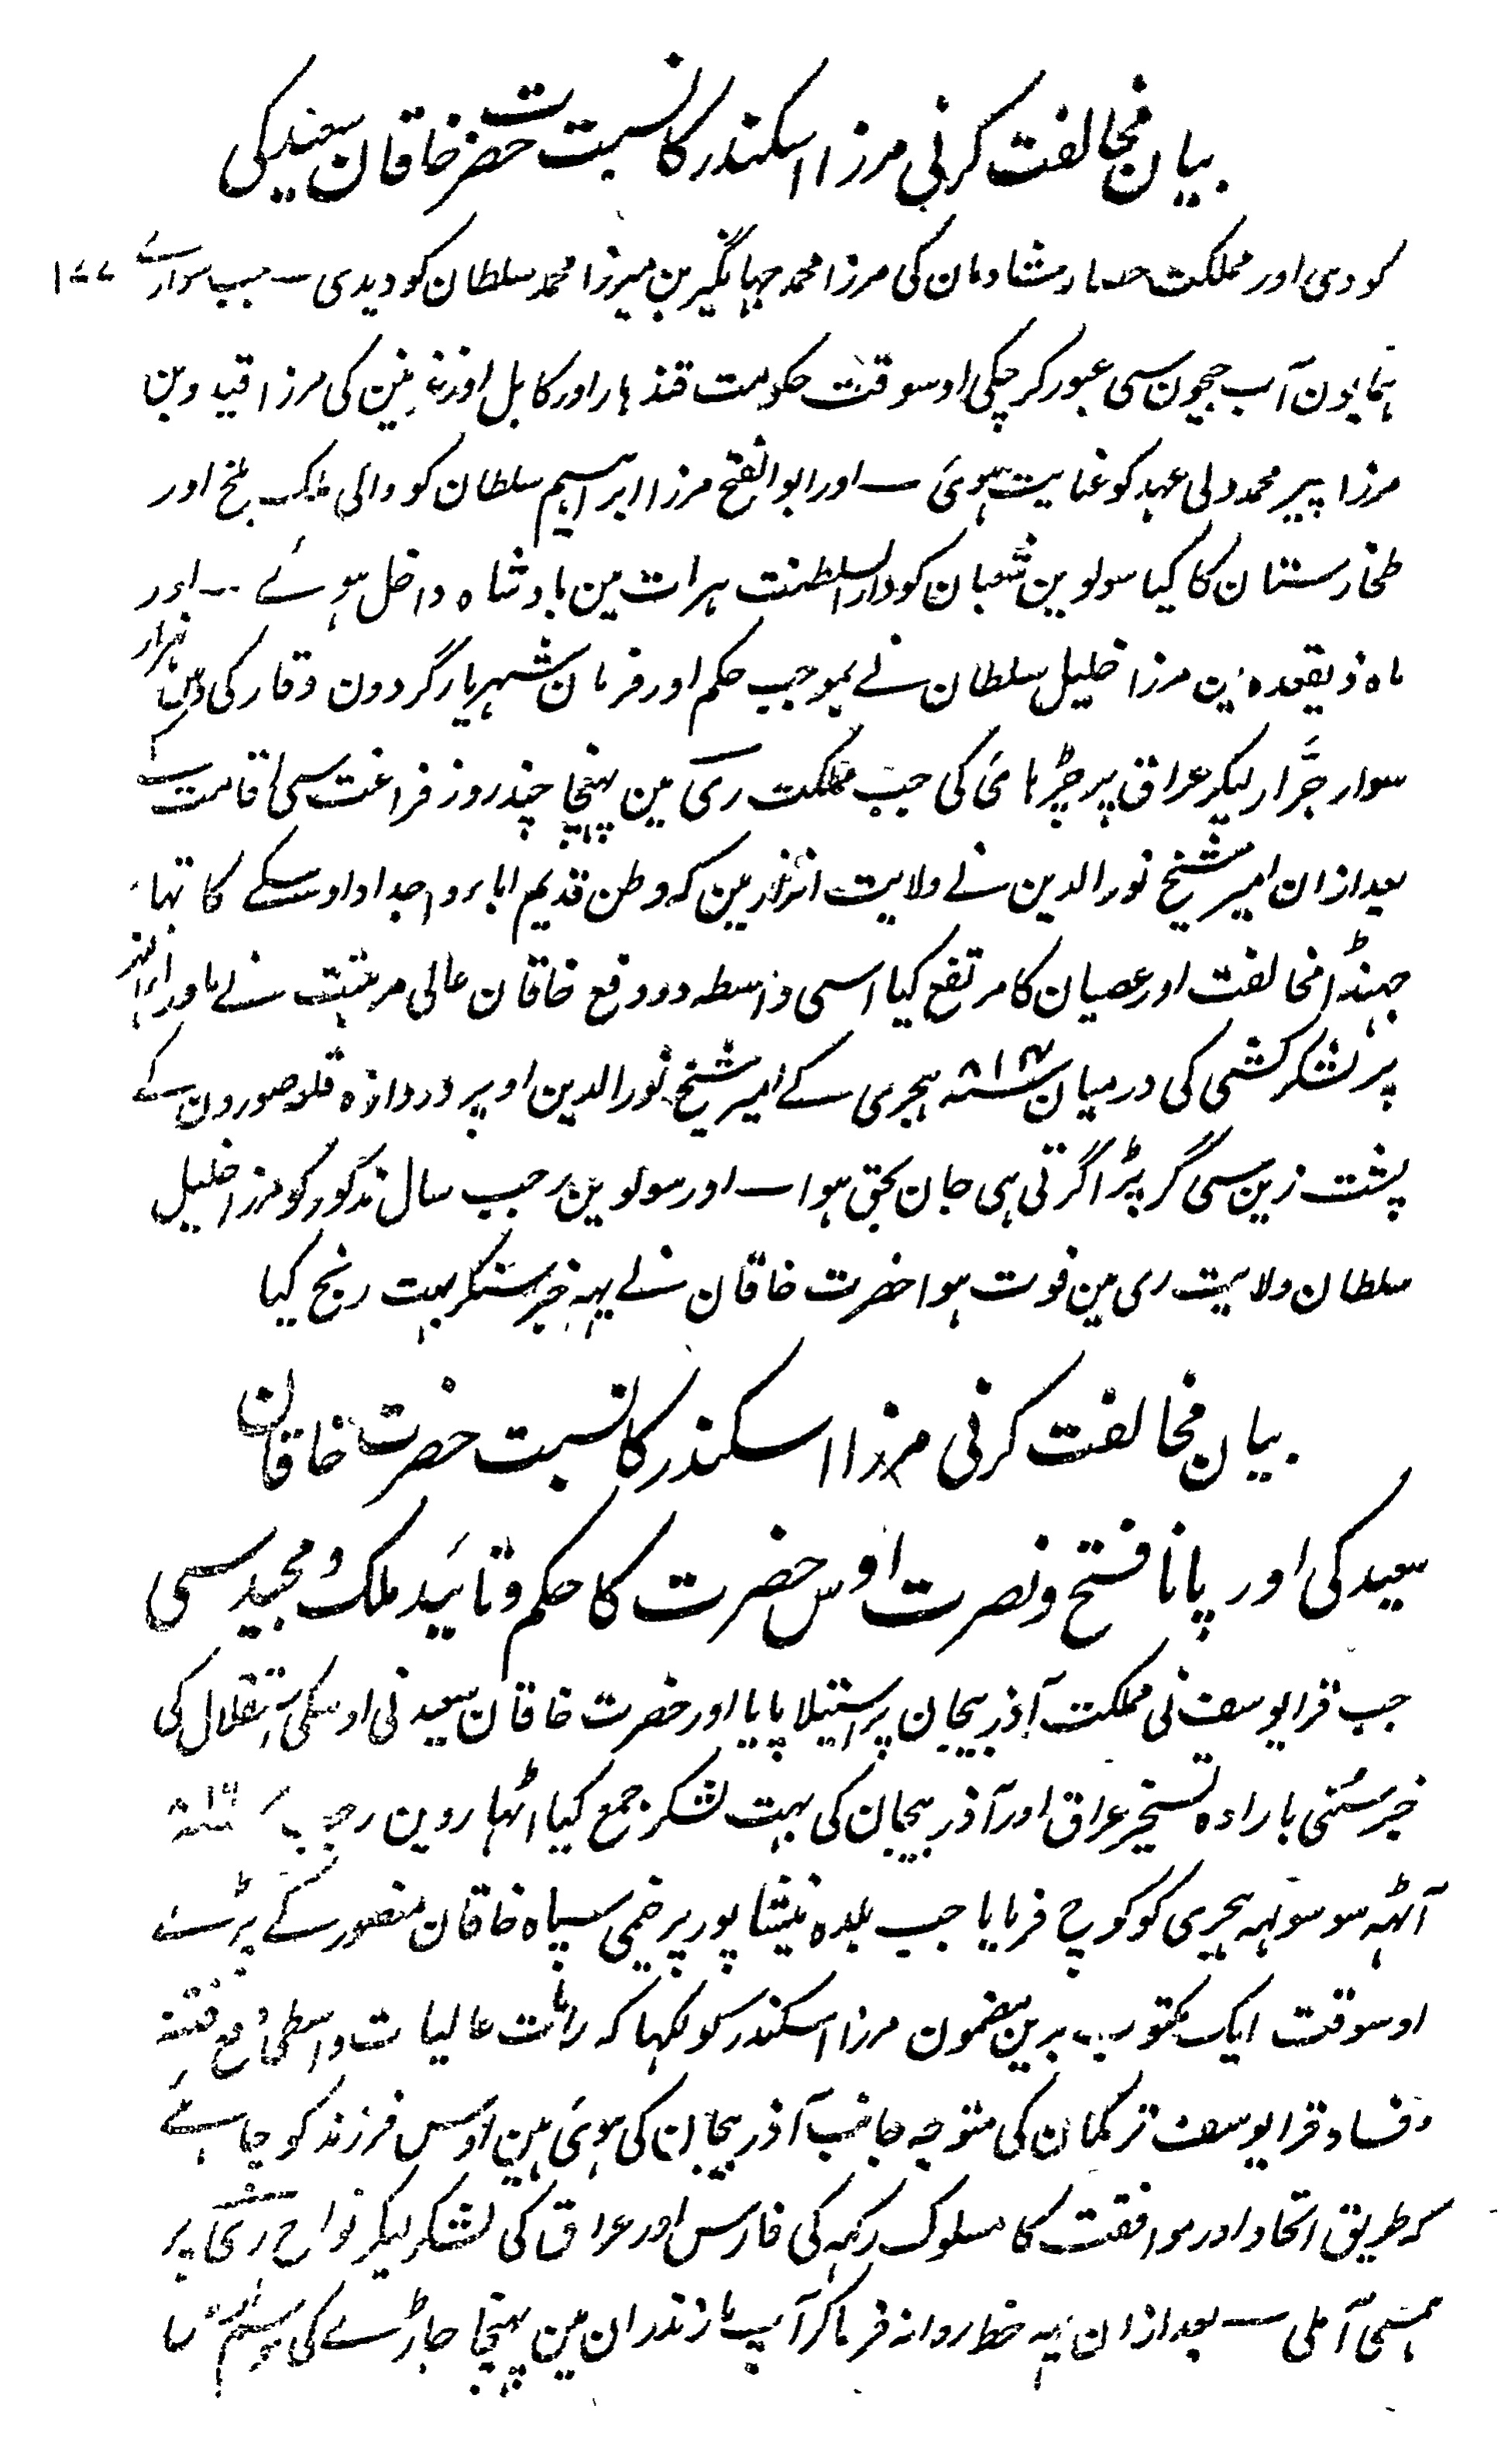 بیان مخالفت کرنی مرزا اسکندر کا نسبت حضرت خاقان سعید کی
۱۷۷
کو دی اور مملکت حصار شادمان کی مرزا محمد جہانگیر بن میرزا محمد سلطان کو دیدی جب سوارے
ہمایون آب جیحون سی عبور کر چکی اوسوقت حکومت قندہار اور کابل اور غزنین کی مرزا قیدو بن
مرزا پیر محمد ولی عہد کو عنایت ہوئ اور ابوالفتح مرزا ابراہیم سلطان کو والی ملک بلخ اور
طخارستان کا کیا سولوین شعبان کو دارالسلطنت ہرات مین بادشاہ داخل ہوئے اور
ماہ ذیقعدہ مین مرزا خلیل سلطان نے بموجب حکم اور فرمان شہریار گردون وقار کی دس ہزار
سوار جرّار لیکر عراق پر چڑہائ کی جب مملکت ری مین پہنچا چند روز فراغت سی اقامت کے
بعد ازان امیر شیخ نورالدین نے ولایت اترار مین کہ وطن قدیم اباء و اجداد اوسکے کا تہا
جہنڈا مخالفت اور عصیان کا مرتفع کیا اسی واسطہ دو دفع خاقان عالی مرتبت نے ماوراءالنہر
پر لشکر کشی کی درمیان سنہ ۸۱۴ ہجری کے امیر شیخ نورالدین اوپر دروازہ قلعہ صورون کے
پشت زین سی گر پڑا گرتی ہی جان بحق ہوا اور سولوین رجب سال مذکور کو مرزا خلیل
سلطان ولایت ری مین فوت ہوا حضرت خاقان نے یہہ خبر سنکر بہت رنج کیا
بیان مخالفت کرنی مرزا اسکندر کا نسبت حضرت خاقان
سعید کی اور پانا فتح و نصرت اوس حضرت کا حکم و تائید ملک مجید سی
جب قرا یوسف نی مملکت آذربیجان پر استیلا پایا اور حضرت خاقان سعید نی اوسکی استقلال کی
خبر سُنی بارادہ تسخیر عراق اور آذربیجان کی بہت لشکر جمع کیا اٹہاروین رجب سنہ ۸۱۶
آٹہہ سو سولہہ ہجری کو کوچ فرمایا جب بلدہ نیشاپور پر خیمی سپاہ خاقان منصور کے پڑے
اوسوقت ایک مکتوب بدین مضمون مرزا اسکندر کو لکہا کہ رایات عالیات واسطی دفع فتنہ
و فساد قرا یوسف ترکمان کی متوجہ جانب آذربیجان کی ہوئ ہین اوس فرزند کو چاہئے
کہ طریق اتحاد اور موافقت کا مسلوک رکہہ کی فارس اور عراق کی لشکر لیکر نواح ری پر
ہمسی آ ملی بعد ازان یہہ خط روانہ فرماکر آپ مازندران مین پہنچا جاڑے کی موسم